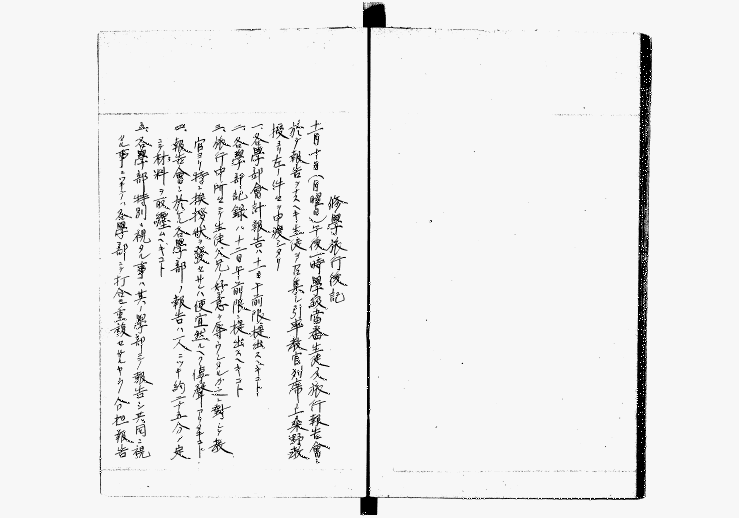 修學旅行後記
十一月十日(月曜日)午後一時學級當番生徒及旅行報告會ニ
於テ報告ヲナスヘキ生徒ヲ召集シ引率教官列席ノ上桑野教
授ヨリ左ノ件々申渡シタリ
一、各學部會計報告ハ十一日午前限リ提出スヘキコト
二、各學部記録ハ十二日午前限リ提出スヘキコト
三、旅行中所々ニテ生徒父兄ノ好意ヲ辱ウシタルガ之ニ對シテ教
官ヨリ特ニ挨拶狀ヲ發セサレハ便宜然ルヘク
四、報告會ニ於ケル各學部ノ報告ハ一人ニツキ約二十五分ノ定
ニテ材料ヲ取纏ムヘキコト
五、各學部特別ニ視タル事ハ其ノ學部ニテ報告シ共同ニ視
タル事ニツキテハ各學部ニテ打合セ重複セサルヤウ分担報告